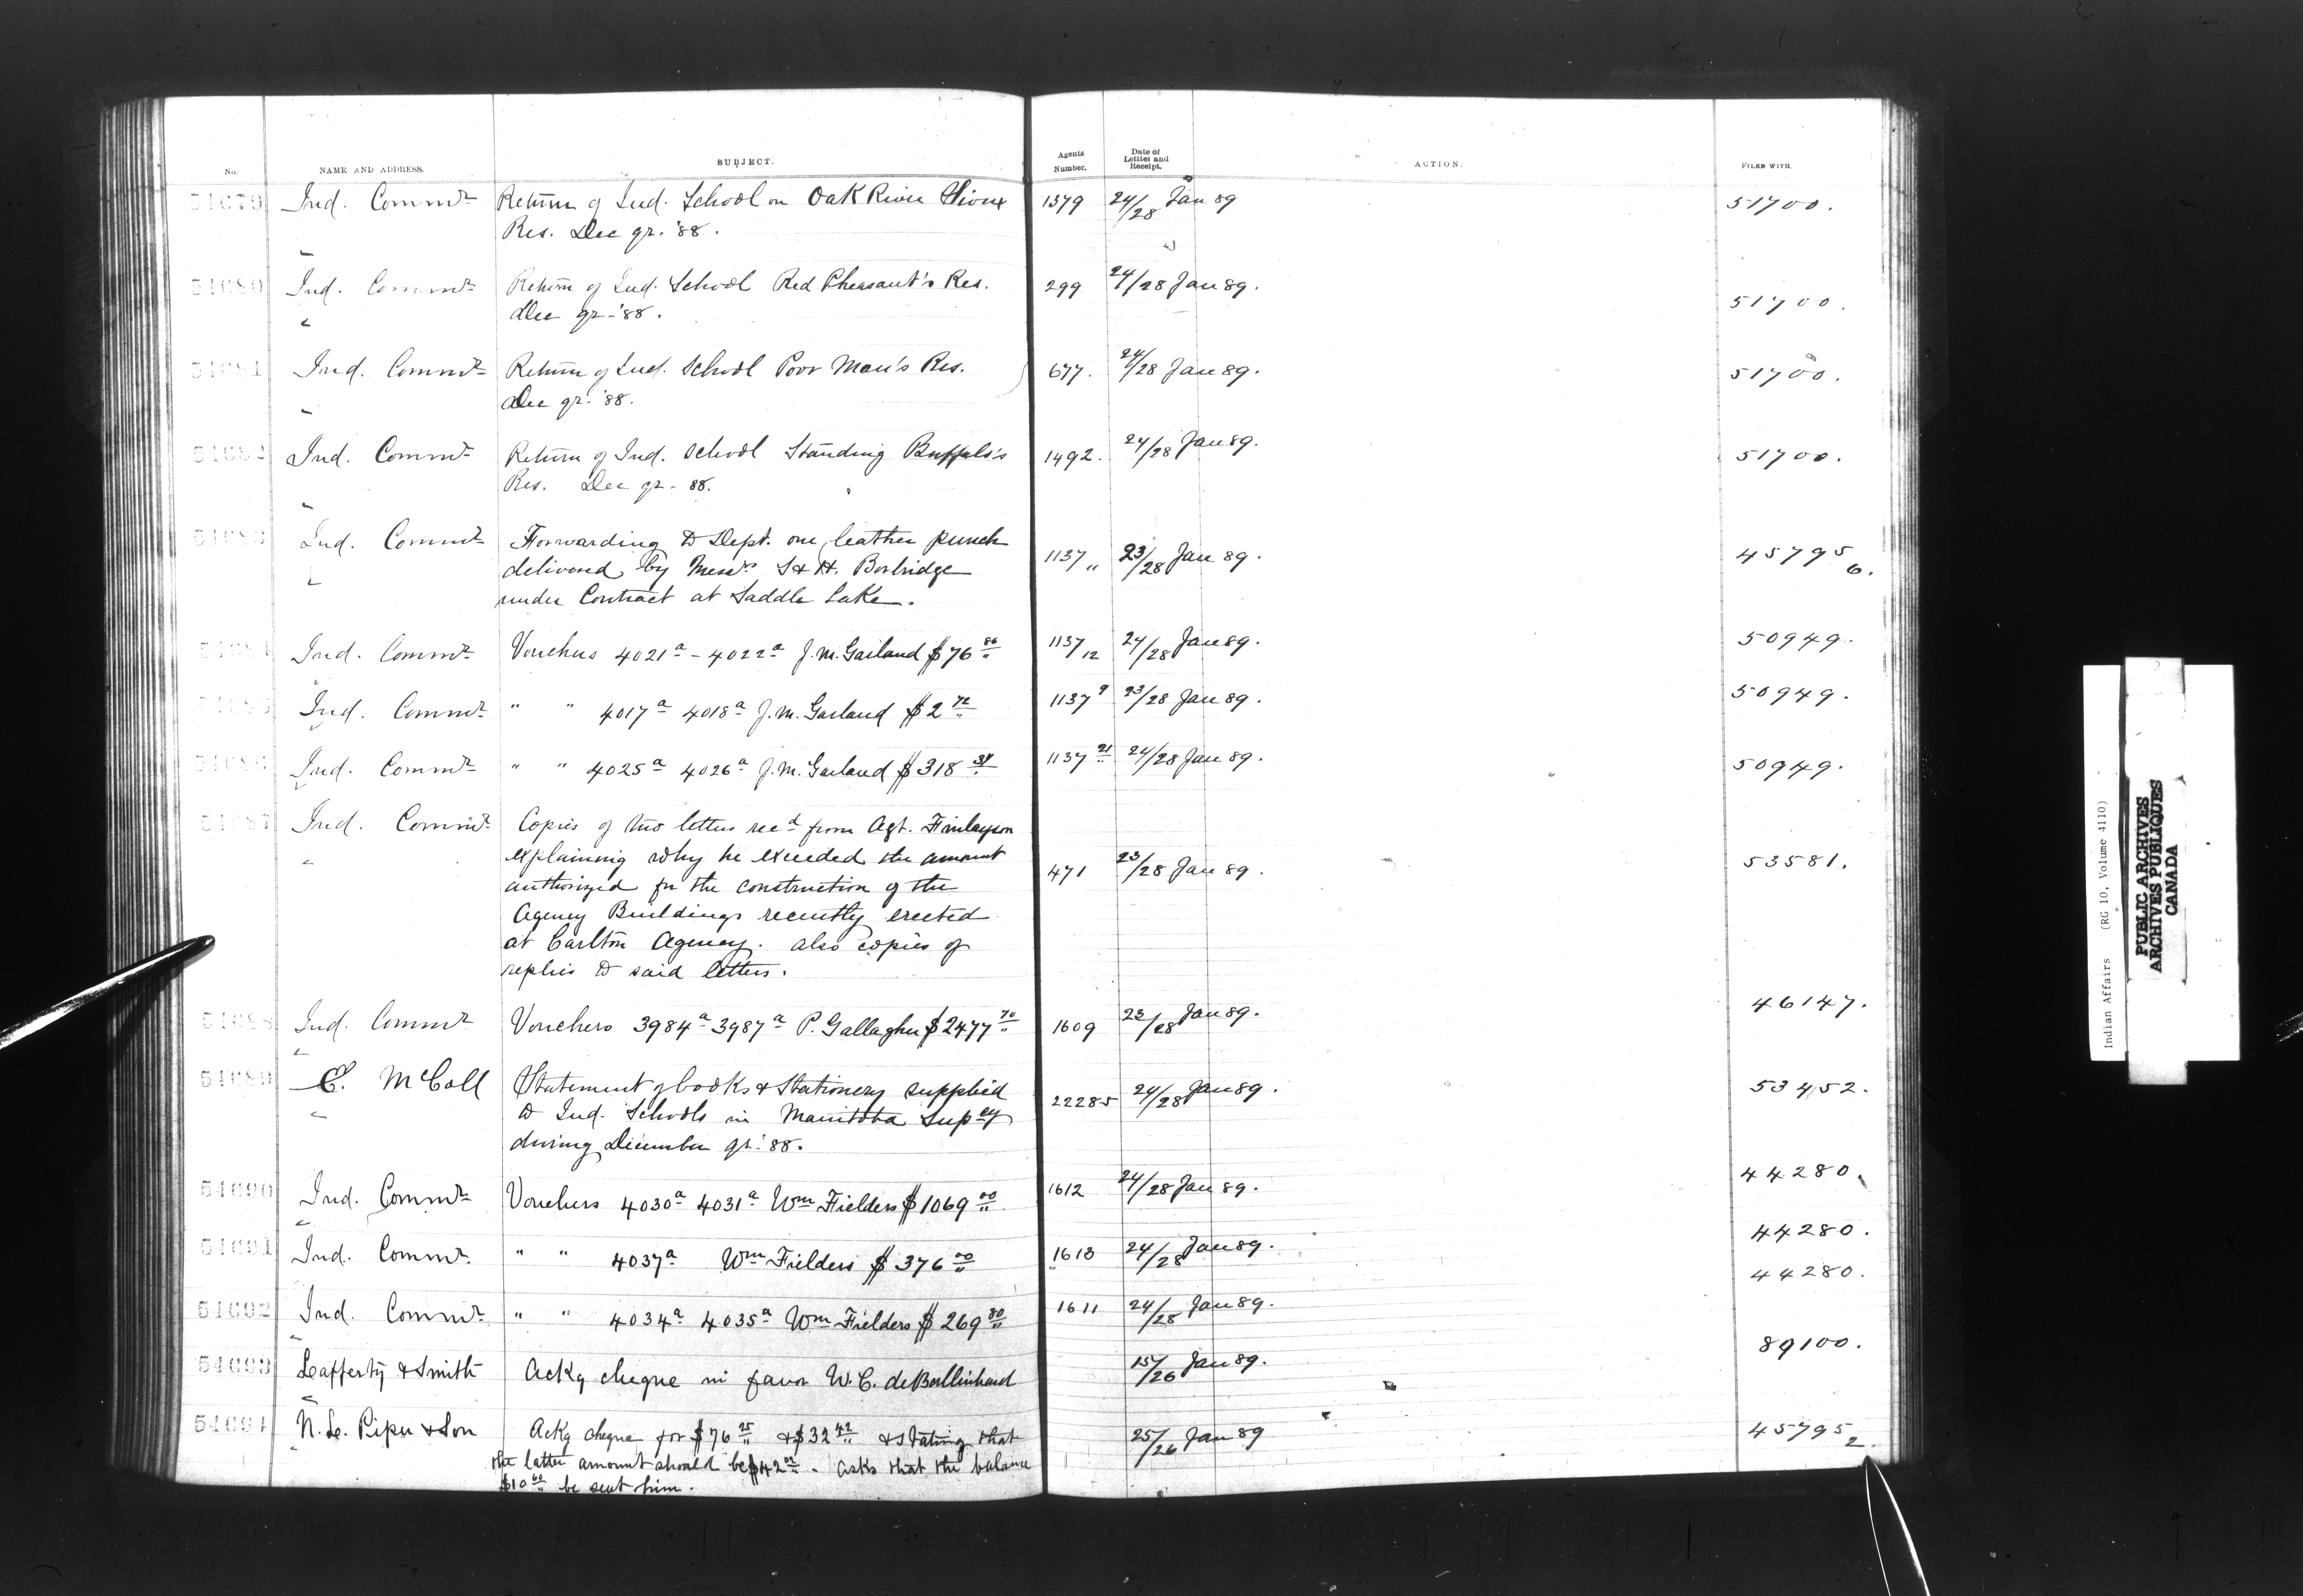 No. NAME AND ADDRESS. SUBJECT. Agents Number. Date of Letter and Receipt. ACTION. FILED WITH.
54679 Ind. Commr Return of Ind. School on Oak River Sioux 1379 24/28 Jan 89 51700.
Res. Dec qr. '88.
54680 Ind. Commr Return of Ind. School Red Pheasant's Res. 299 24/28 Jan 89. 51700.
Dec qr - '88.
54681 Ind. Commr Return of Ind. School Poor Man's Res. 677. 24/28 Jan 89. 51700.
Dec qr. '88.
54682 Ind. Commr Return of Ind. School Standing Buffalo's 1492. 24/28 Jan 89. 51700.
Res. Dec qr - 88.
54683 Ind. Commr Forwarding to Dept. one leather punch
delivered by Messrs S & H. Borbridge 1137 11 23/28 Jan 89. 45795 6.
under Contract at Saddle Lake.
54684 Ind. Commr Vouchers 4021a - 4022a J.M. Garland $76 86 1137/12 24/28 Jan 89. 50949.
54685 Ind. Commr " " 4017a 4018a J.M. Garland $2 72 1137 9 23/28 Jan 89. 50949.
54686 Ind. Commr " " 4025a 4026a J.M. Garland $318 1137 21 24/28 Jan 89. 50949.
54687 Ind. Commr Copies of two letters recd from Agt. Finlayson
explaining why he exceeded the amount 471 23/28 Jan 89. 53581.
authorized for the construction of the
Agency Buildings recently erected
at Carlton Agency. also copies of
replies to said letters.
54688 Ind. Commr Vouchers 3984a 3987a P. Gallagher $2477 70 1609 23/28 Jan 89. 46147.
54689 E. McColl Statement of books & Stationery supplied 22285 24/28 Jan 89. 53452.
to Ind. Schools in Manitoba Supcy
during December qr. '88.
54690 Ind. Commr Vouchers 4030a 4031a Wm Fielders $1069 00 1612 24/28 Jan 89. 44280.
54691 Ind. Commr " " 4037a Wm Fielders $376 00 1613 24/28 Jan 89. 44280.
54692 Ind. Commr " " 4034a 4035a Wm Fielders $269 80 1611 24/28 Jan 89. 44280.
54693 Lafferty & Smith Ackg cheque in favor W.C. deBallinhard 15/26 Jan 89. 89100.
54694 N. L. Piper & Son Ackg cheque for $76 25 & $32 42 & stating that 25/26 Jan 89 45795 2.
the latter amount should be $42 02. Asks that the balance
$10 60 be sent him.
Indian Affairs (RG 10, Volume 4110)
PUBLIC ARCHIVES
ARCHIVES PUBLIQUES
CANADA